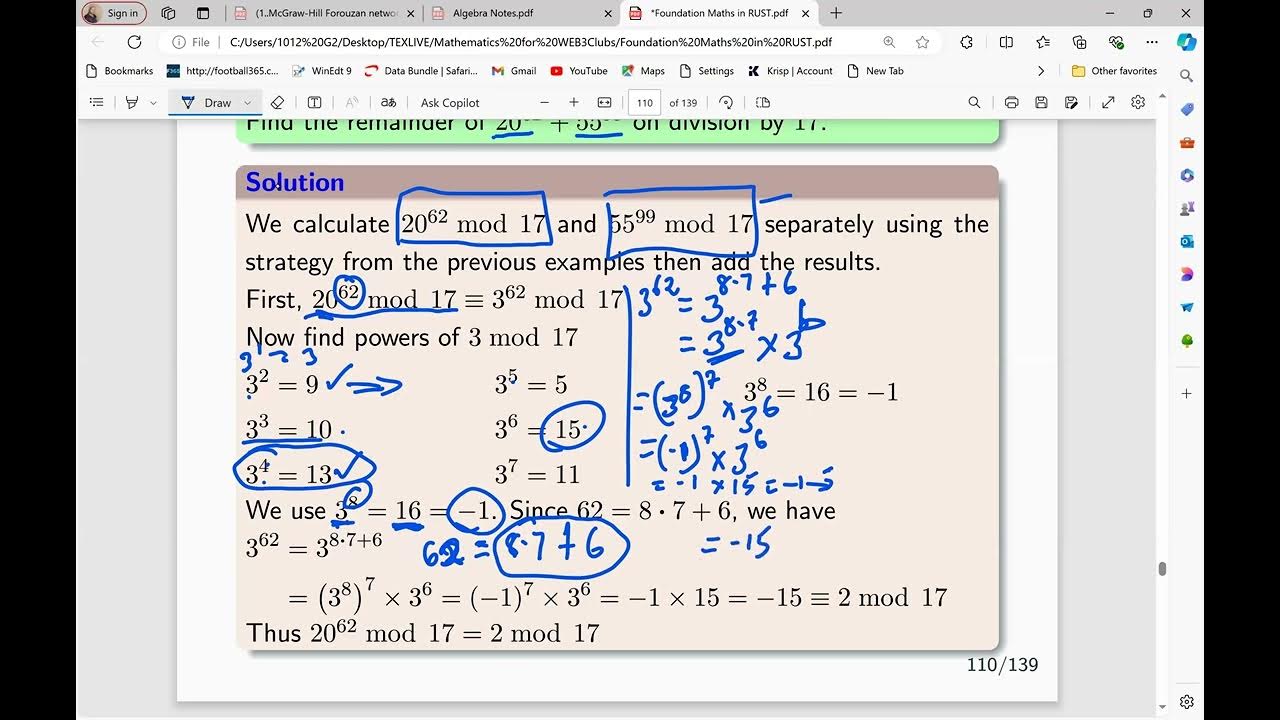 Sign in
(1..McGraw-Hill Forouzan netwo
Algebra Notes.pdf
*Foundation Maths in RUST.pdf
File
C:/Users/1012%20G2/Desktop/TEXLIVE/Mathematics%20for%20WEB3Clubs/Foundation%20Maths%20in%20RUST.pdf
Bookmarks
http://football365.c...
WinEdt 9
Data Bundle | Safari...
Gmail
YouTube
Maps
Settings
Krisp | Account
New Tab
Other favorites
Draw
Ask Copilot
110 of 139
Find the remainder of 20⁶² + 55⁹⁹ on division by 17.
Solution
We calculate 20⁶² mod 17 and 55⁹⁹ mod 17 separately using the
strategy from the previous examples then add the results.
First, 20⁶² mod 17 ≡ 3⁶² mod 17
3⁶² = 3⁸·⁷⁺⁶
Now find powers of 3 mod 17
= 3⁸·⁷ × 3⁶
3¹ = 3
3² = 9
3⁵ = 5
= (3⁸)⁷ × 3⁶
3⁸ = 16 = −1
3³ = 10
3⁶ = 15
= (-1)⁷ × 3⁶
3⁴ = 13
3⁷ = 11
= -1 × 15 = -15
We use 3⁸ = 16 = −1. Since 62 = 8 · 7 + 6, we have
3⁶² = 3⁸·⁷⁺⁶
62 = 8·7 + 6
= -15
= (3⁸)⁷ × 3⁶ = (−1)⁷ × 3⁶ = −1 × 15 = −15 ≡ 2 mod 17
Thus 20⁶² mod 17 = 2 mod 17
110/139